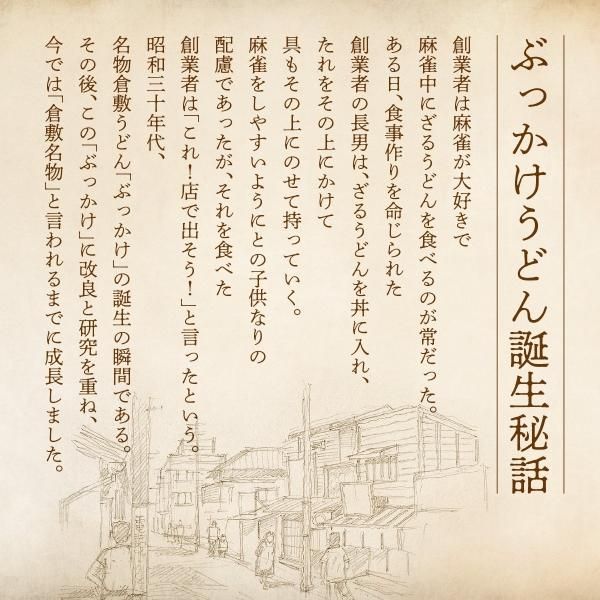 ぶっかけうどん誕生秘話
創業者は麻雀が大好きで
麻雀中にざるうどんを食べるのが常だった。
ある日、食事作りを命じられた
創業者の長男は、ざるうどんを丼に入れ、
たれをその上にかけて
具もその上にのせて持っていく。
麻雀をしやすいようにとの子供なりの
配慮であったが、それを食べた
創業者は「これ！店で出そう！」と言ったという。
昭和三十年代、
名物倉敷うどん「ぶっかけ」の誕生の瞬間である。
その後、この「ぶっかけ」に改良と研究を重ね、
今では「倉敷名物」と言われるまでに成長しました。